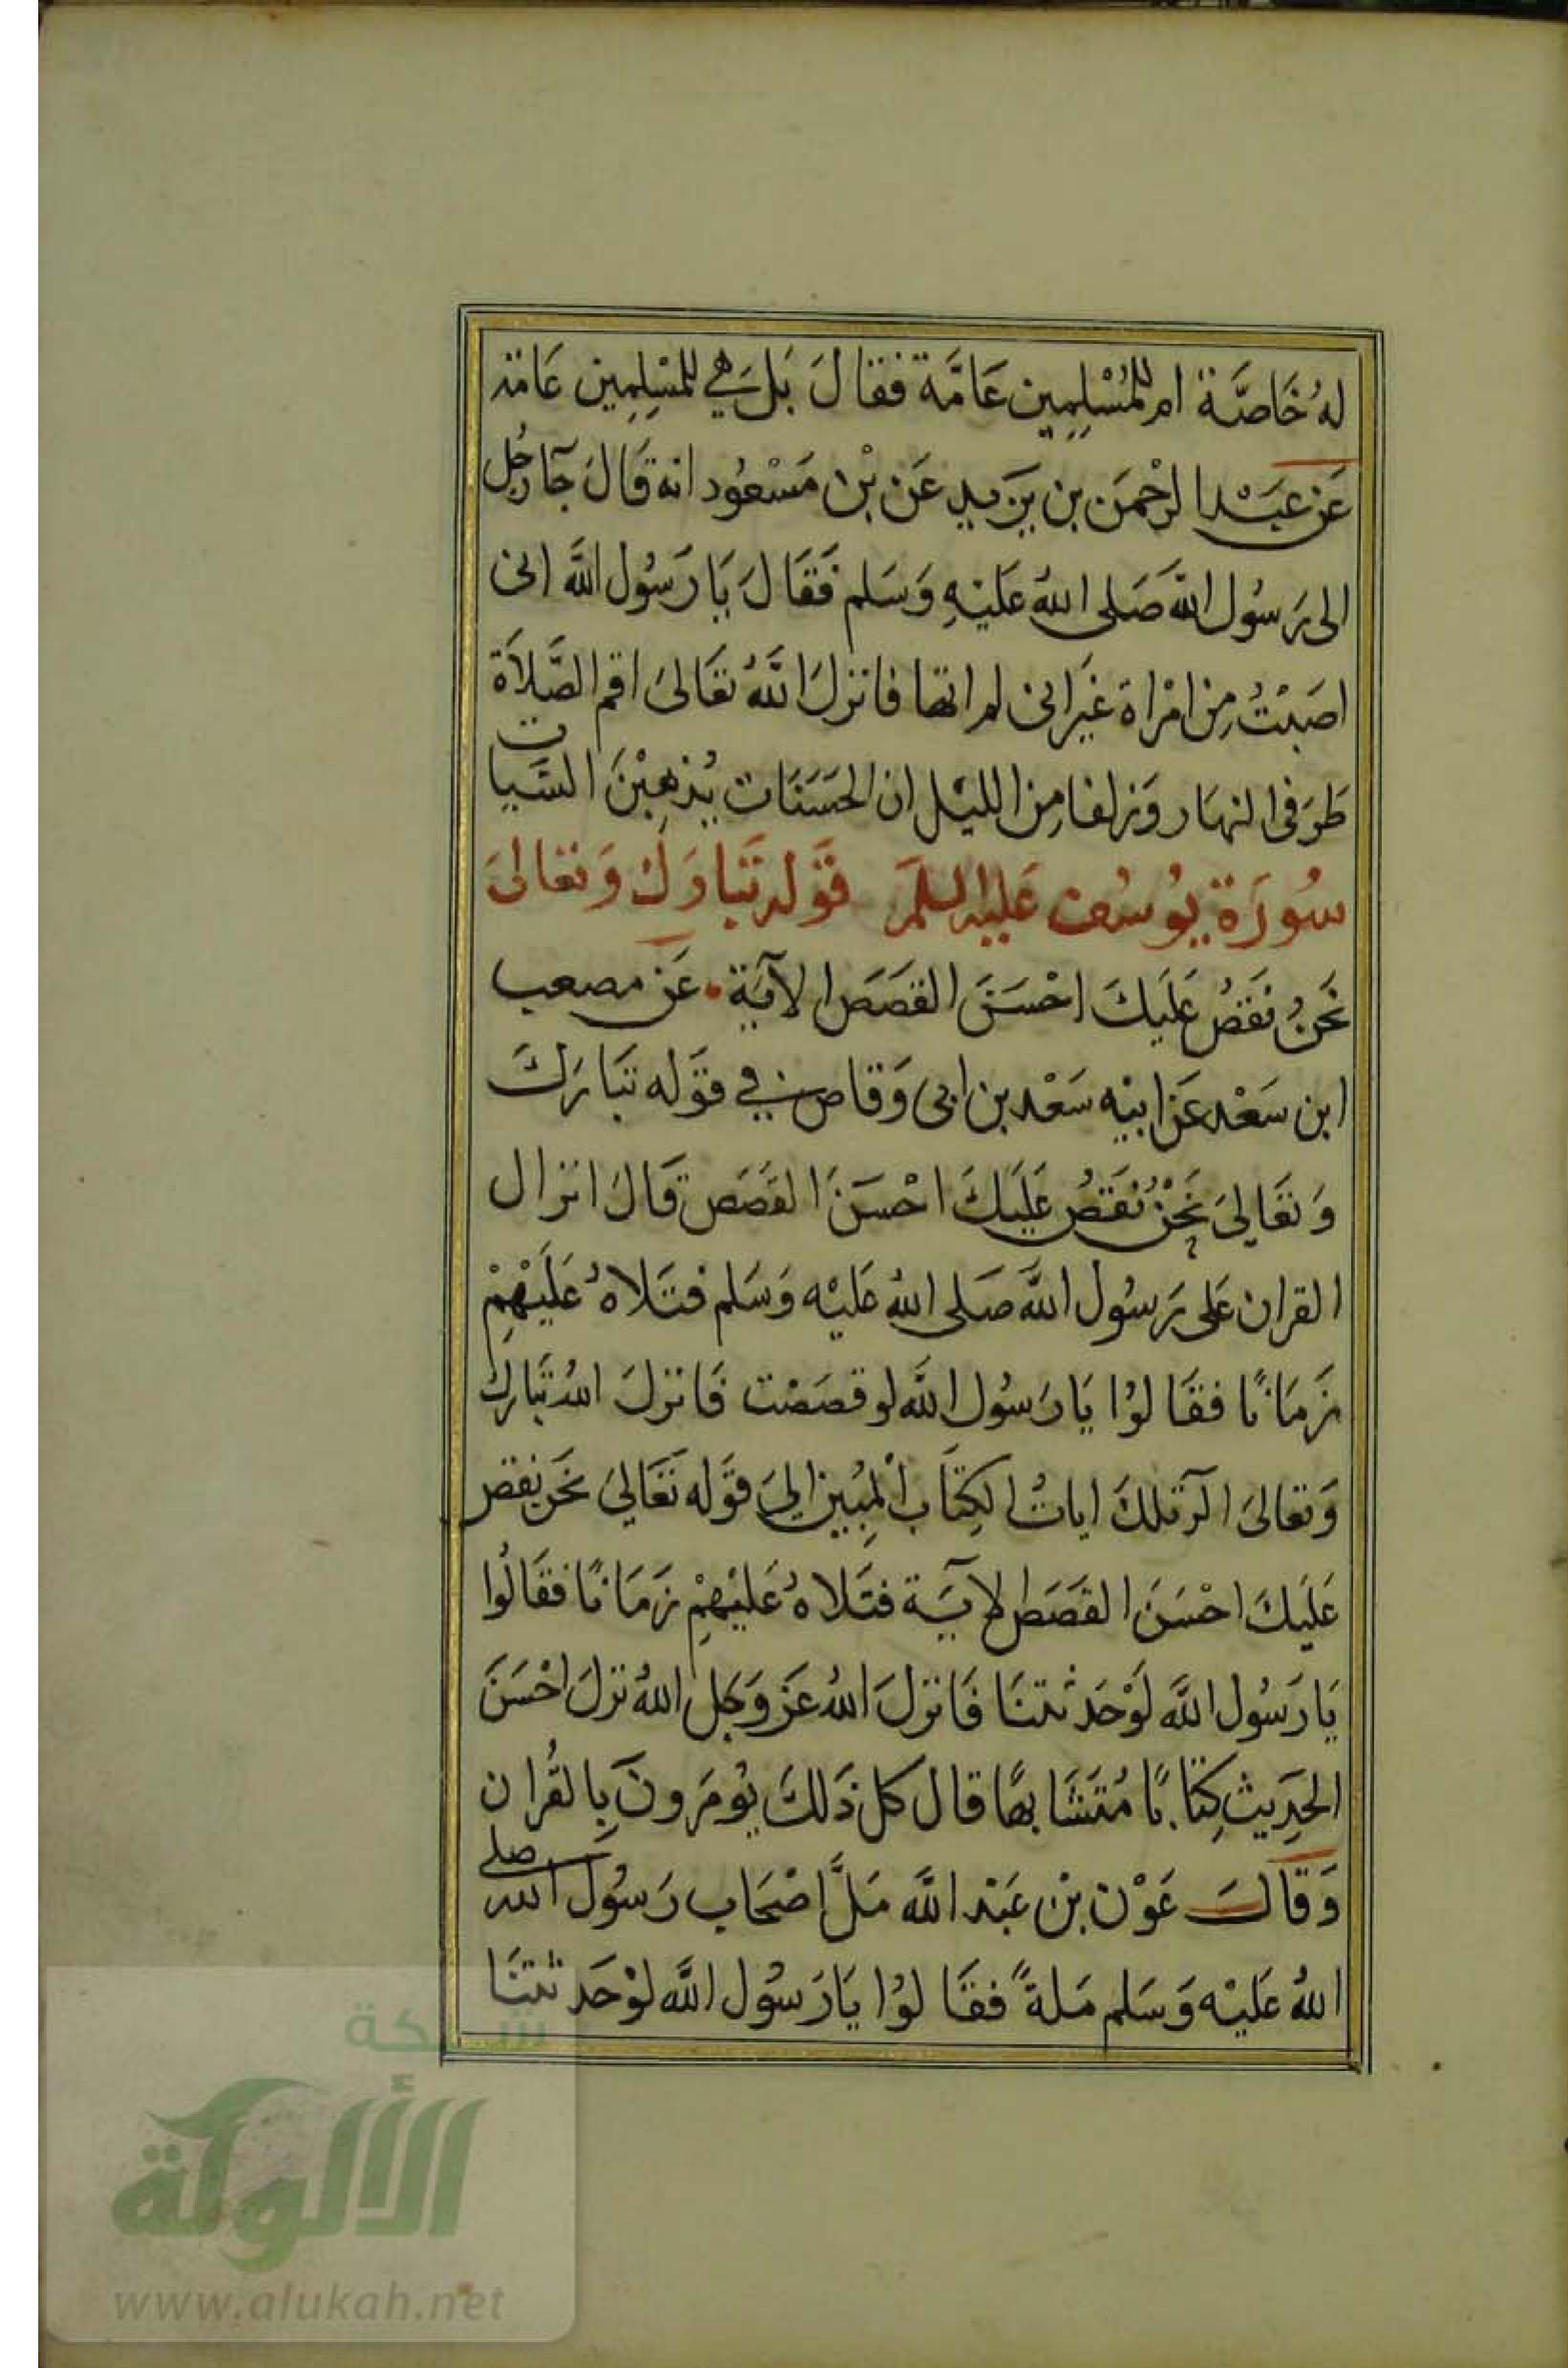 لهُ خَاصَّة ام للمُسْلِمِين عَامَّة فقالَ بَل هي للمُسْلِمِين عَامة
عَن عبَدا لرحْمَن بن يَزيد عَن بْن مَسْعُود انه قَالَ جَآ رجُل
الى رَسُول اللَّه صَلى اللهُ عَليْهِ وَسَلم فَقَالَ يَا رَسُول اللَّه انى
اصَبْتُ مِن امْراة غَيرانى لم اتها فانزلَ اللَّهُ تعَالىَ اقم الصَّلاَة
طَرَفى النهَار وَزلفا مِن الليْل ان الحَسَنَات يُذهِبْنَ السَّيات
سُورَة يُوسُف عَليه السلمَ قوَله تَبَارَك وَتعَالىَ
نَحنُ نَقصُ عَلَيكَ احْسَنَ القصَصَ الآيَة عَن مصعب
ابن سَعْد عَن ابيْه سَعْد بن ابى وَقاص في قوَله تبَارَكَ
وَتعَاليَ نَحْنُ نُقَصُ عَلَيكَ احْسَنَ القصَص قَالَ انزال
القران عَلى رَسُول اللَّه صَلى اللهُ عَليْه وَسَلم فتَلاهُ عَلَيْهِمْ
زَمَانًا فقَالوُا يَا رَسُول اللَّه لو قصَصْت فَانزلَ اللهُ تَبارك
وَتعَالىَ الَر تلكَ اياتُ الكِتَاب المِبُين اليَ قوَله تعَاليَ نحَن نقص
عَلَيكَ احْسَنَ القصَصَ الايَة فتَلاهُ عَليْهِمْ زَمَانًا فقَالُوا
يَا رَسُول اللَّه لوْحَدثتنَا فَانزلَ اللهُ عَز وَجل اللهُ نزلَ احْسَنَ
الحَدِيث كِتَابًا مُتَشَابهًا قال كل ذَلكَ يوُمَرونَ بِالقُران
وَقالَ عَوْن بْن عَبْد اللَّه مَلَّ اصْحَاب رَسُول الله صلى
اللهُ عَليْه وَسَلم مَلةً فقَالوُا يَا رَسُول اللَّه لوْحَدثتنَا
شبكة
الألوكة
www.alukah.net